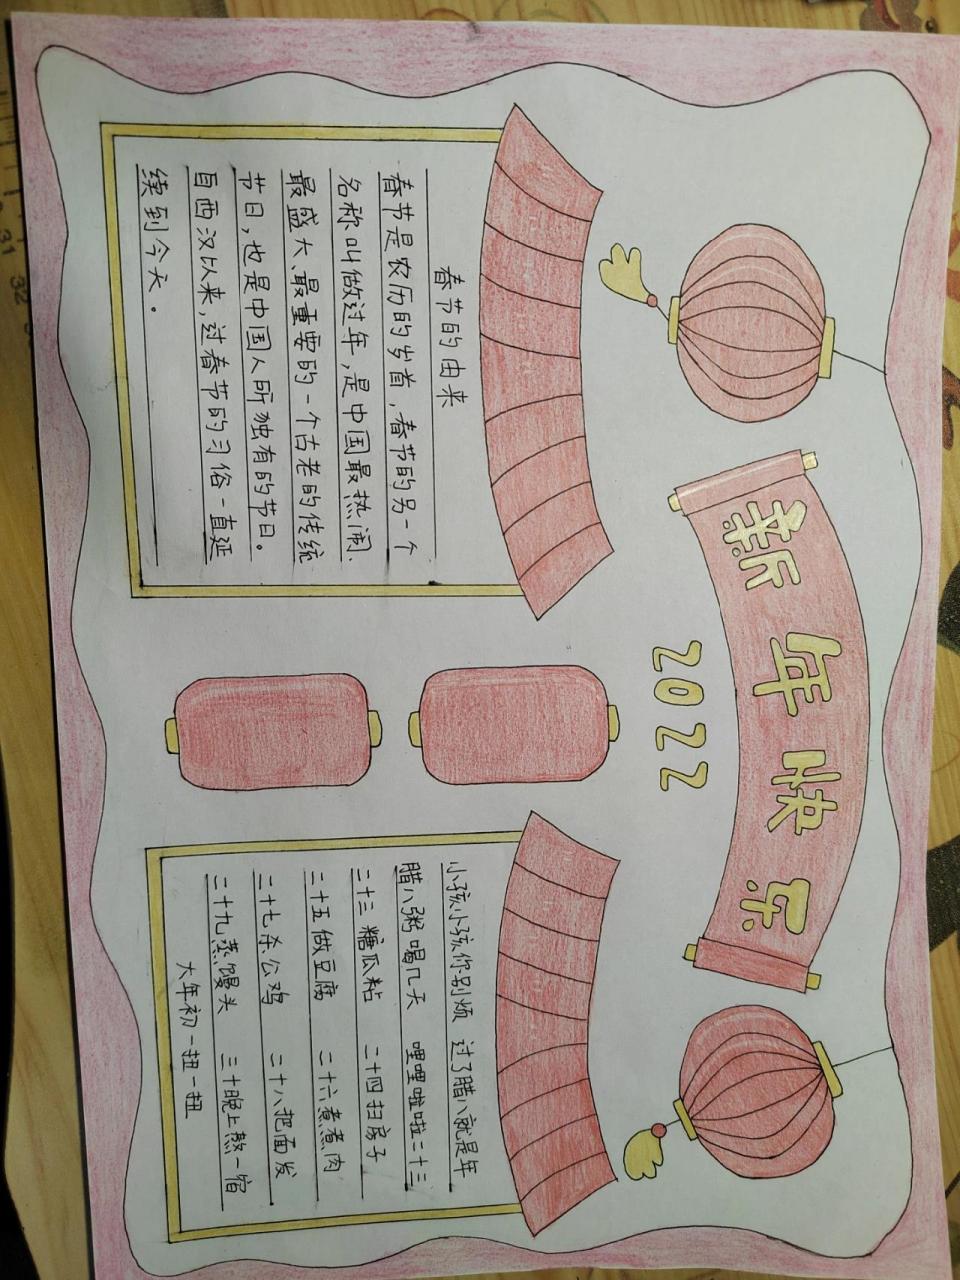 新年快乐
2022
春节的由来
春节是农历的岁首，春节的另一个
名称叫做过年，是中国最热闹、
最盛大、最重要的一个古老的传统
节日，也是中国人所独有的节日。
自西汉以来，过春节的习俗一直延
续到今天。
小孩小孩你别烦 过了腊八就是年
腊八粥喝几天 哩哩啦啦二十三
二十三糖瓜粘 二十四扫房子
二十五做豆腐 二十六煮煮肉
二十七杀公鸡 二十八把面发
二十九蒸馒头 三十晚上熬一宿
大年初一扭一扭
31 32